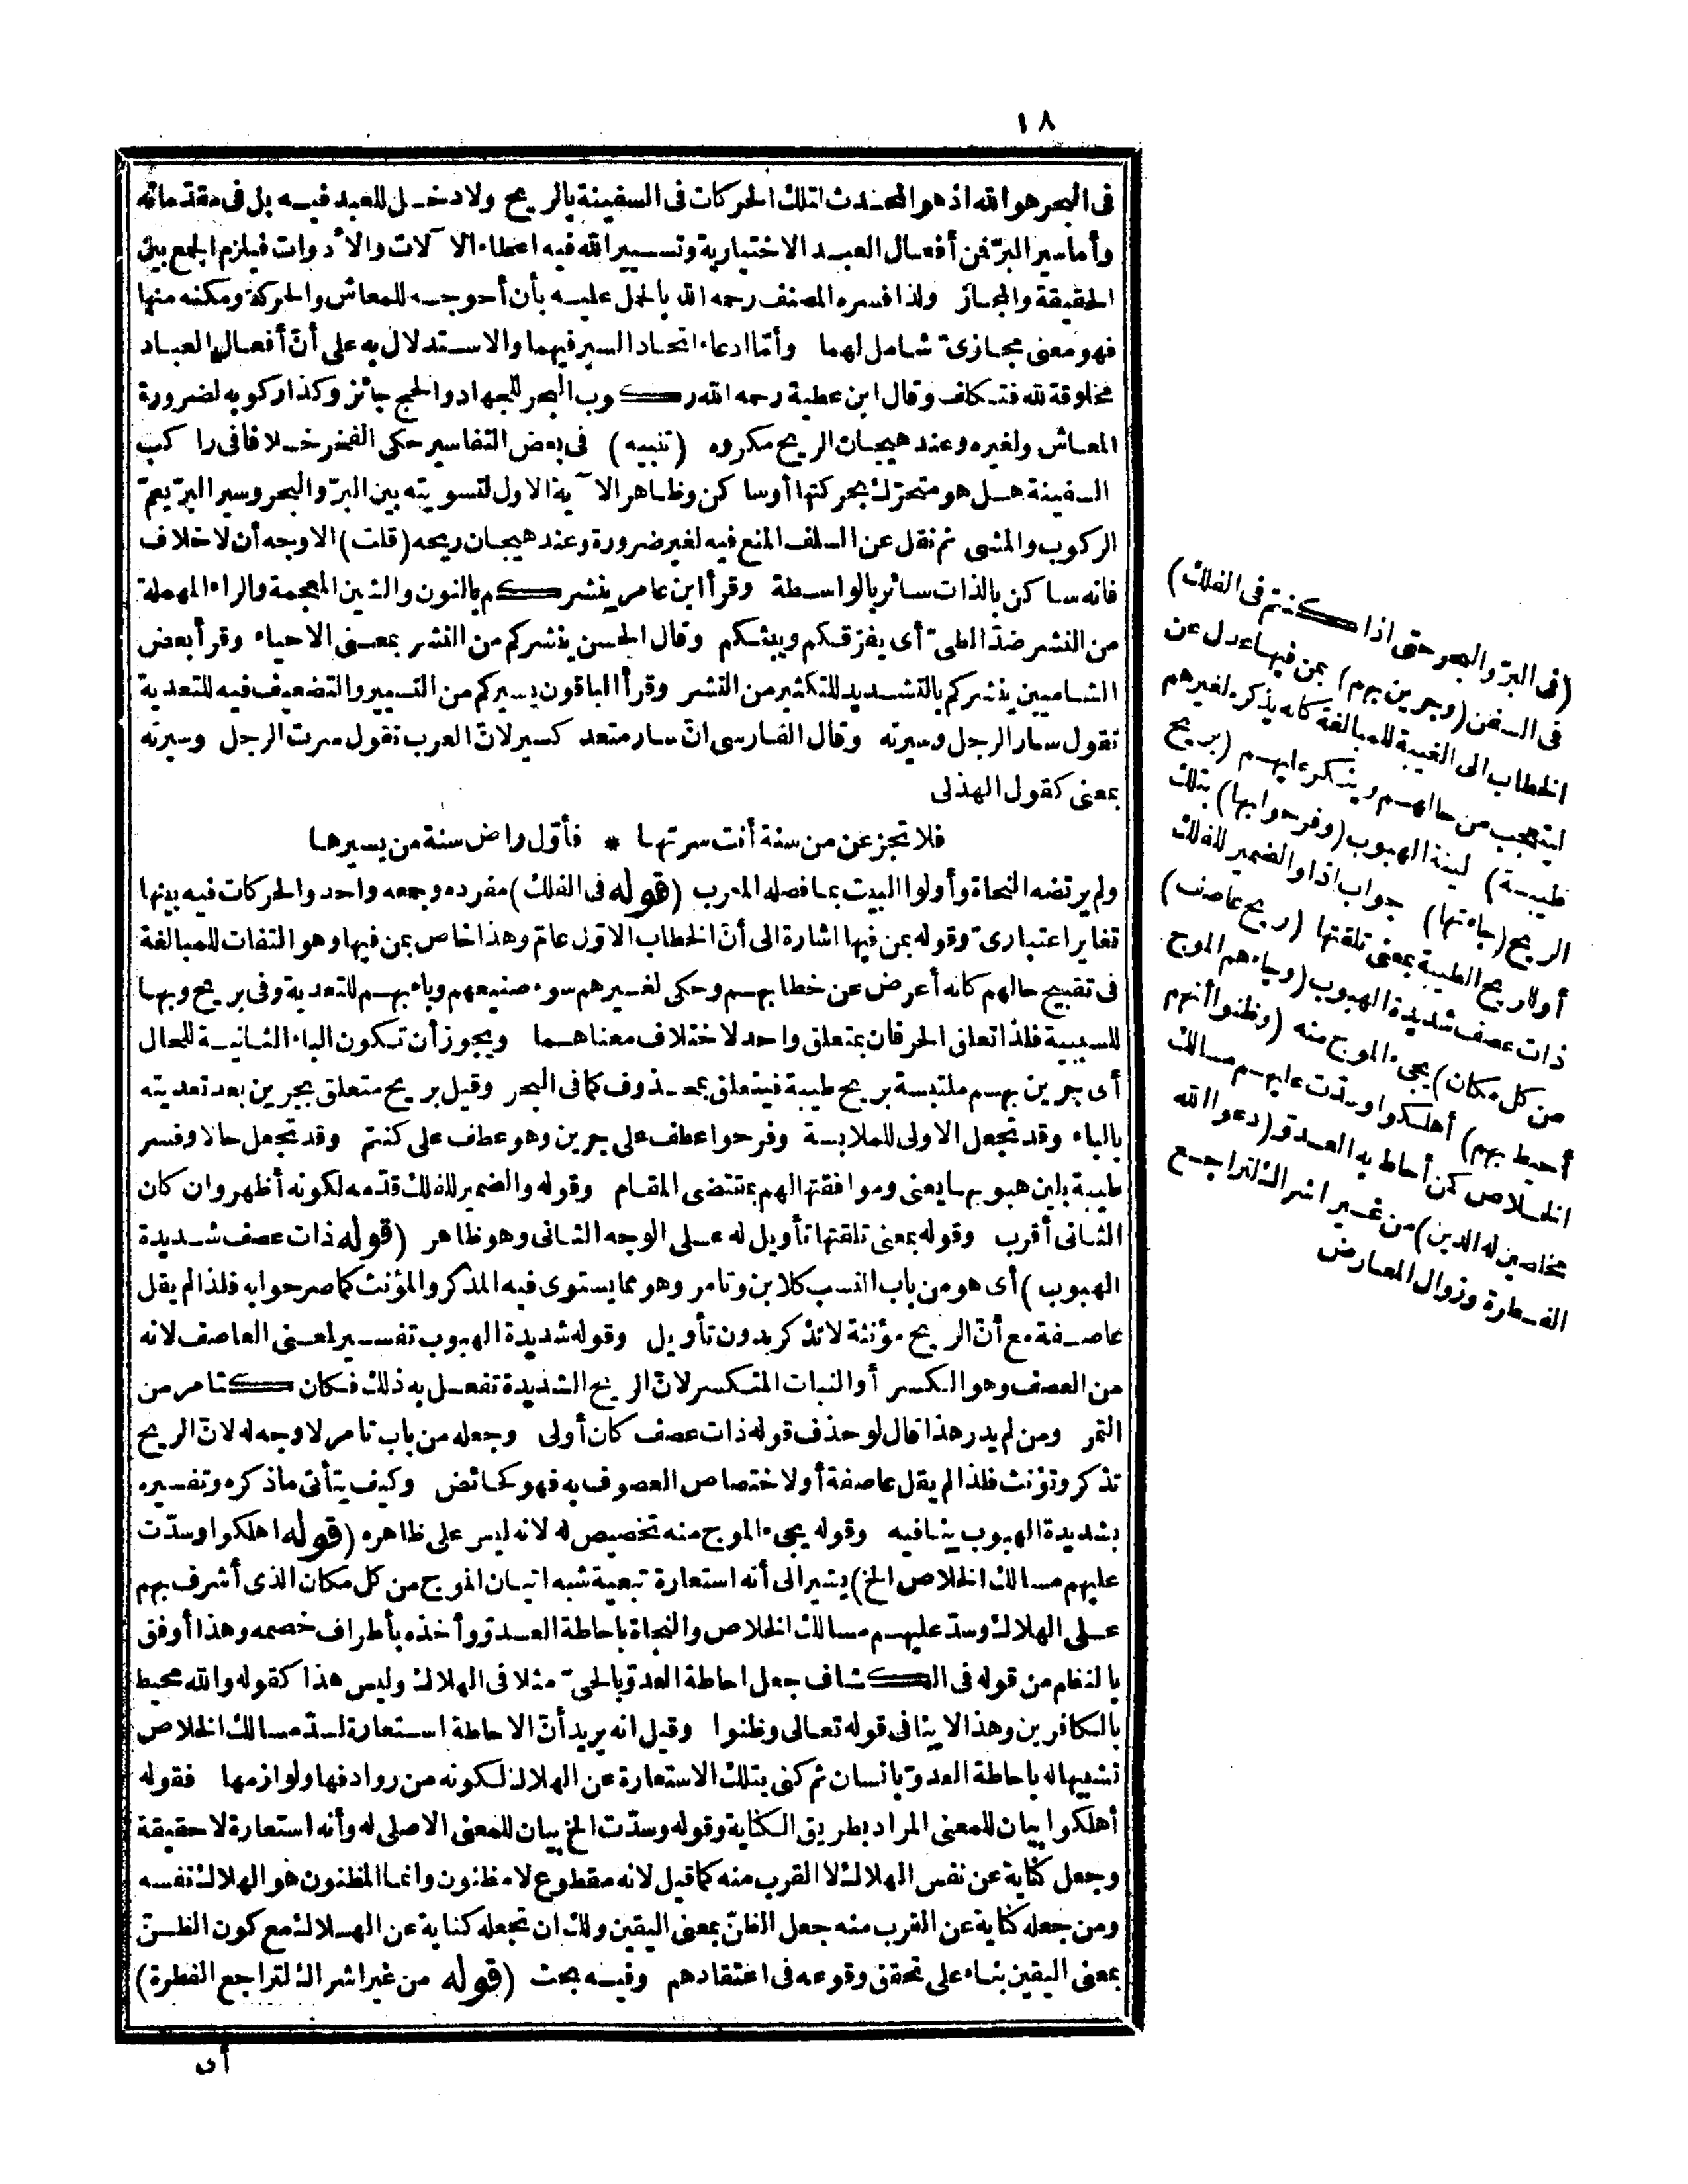 ١٨
فى البحر هو الله اذ هو المحدث لتلك الحركات فى السفينة بالريح ولا دخل للعبد فيه بل فى مقدماته
وأما سير البرّ فمن أفعال العبد الاختيارية وتسيير الله فيه اعطاء الآلات والأدوات فيلزم الجمع بين
الحقيقة والمجاز ولذا فسره المصنف رحمه الله بالحمل عليه بأن أحوجه للمعاش والحركة ومكنه منها
فهو معنى مجازىّ شامل لهما وأمّا ادعاء اتحاد السير فيهما والاستدلال به على أنّ أفعال العباد
مخلوقة لله فتكلف وقال ابن عطية رحمه الله ركوب البحر للجهاد والحج جائز وكذا ركوبه لضرورة
المعاش ولغيره وعند هيجان الريح مكروه (تنبيه) فى بعض التفاسير حكى الفخر خلافا فى راكب
السفينة هل هو متحرّك بحركتها أوساكن وظاهر الآية الاول لتسويته بين البرّ والبحر وسير البرّ يعمّ
الركوب والمشى ثم نقل عن السلف المنع فيه لغير ضرورة وعند هيجان ريحه (قلت) الاوجه أن لا خلاف
فانه ساكن بالذات سائر بالواسطة وقرأ ابن عامر ينشركم بالنون والشين المعجمة والراء المهملة
من النشر ضدّ الطىّ أى يفرّقكم ويبثكم وقال الحسن ينشركم من النشر بمعنى الاحياء وقرأ بعض
الشاميين ينشركم بالتشديد للتكثير من النشر وقرأ الباقون يسيركم من التسيير والتضعيف فيه للتعدية
تقول سار الرجل وسيرته وقال الفارسى انّ سار متعد كسير لانّ العرب تقول سرت الرجل وسيرته
بمعنى كقول الهذلى
فلا تجزعن من سنة أنت سرتها * فأوّل راض سنة من يسيرها
ولم يرتضه النحاة وأولوا البيت بما فصله المعرب (قوله فى الفلك) مفرده وجمعه واحد والحركات فيه بينها
تغاير اعتبارىّ وقوله بمن فيها اشارة الى أنّ الخطاب الاوّل عامّ وهذا خاص بمن فيها وهو التفات للمبالغة
فى تقبيح حالهم كانه أعرض عن خطابهم وحكى لغيرهم سوء صنيعهم وباء بهم للتعدية وفى بريح وبها
للسببية فلذا تعلق الحرفان بمتعلق واحد لاختلاف معناهما ويجوز أن تكون الباء الثانية للحال
أى جرين بهم ملتبسة بريح طيبة فيتعلق بمحذوف كما فى البحر وقيل بريح متعلق بجرين بعد تعديته
بالباء وقد تجعل الاولى للملابسة وفرحوا عطف على جرين وهو عطف على كنتم وقد تجعل حالا وفسر
طيبة بلين هبوبها يعنى وموافقتها لهم بمقتضى المقام وقوله والضمير للفلك قدّمه لكونه أظهر وان كان
الثانى أقرب وقوله بمعنى تلقتها تأويل له على الوجه الثانى وهو ظاهر (قوله ذات عصف شديدة
الهبوب) أى هو من باب النسب كلابن وتامر وهو مما يستوى فيه المذكر والمؤنث كما صرحوا به فلذا لم يقل
عاصفة مع أنّ الريح مؤنثة لا تذكر بدون تأويل وقوله شديدة الهبوب تفسير لمعنى العاصف لانه
من العصف وهو الكسر أو النبات المتكسر لانّ الريح الشديدة تفعل به ذلك فكان كتامر من
التمر ومن لم يدر هذا قال لو حذف قوله ذات عصف كان أولى وجعله من باب تامر لا وجه له لانّ الريح
تذكر وتؤنث فلذا لم يقل عاصفة أو لاختصاص العصوف به فهو كحائض وكيف يتأتى ما ذكره وتفسيره
بشديدة الهبوب ينافيه وقوله يجىء الموج منه تخصيص له لانه ليس على ظاهره (قوله اهلكوا وسدّت
عليهم مسالك الخلاص الخ) يشير الى أنه استعارة تبعية شبه اتيان الموج من كل مكان الذى أشرف بهم
على الهلاك وسدّ عليهم مسالك الخلاص والنجاة باحاطة العدوّ وأخذه بأطراف خصمه وهذا أوفق
بالنظم من قوله فى الكشاف جعل احاطة العدوّ بالحىّ مثلا فى الهلاك وليس هذا كقوله والله محيط
بالكافرين وهذا لا ينافى قوله تعالى وظنوا وقيل انه يريد أنّ الاحاطة استعارة لسدّ مسالك الخلاص
تشبيها له باحاطة العدوّ بانسان ثم كنى بتلك الاستعارة عن الهلاك لكونه من روادفها ولوازمها فقوله
أهلكوا بيان للمعنى المراد بطريق الكناية وقوله وسدّت الخ بيان للمعنى الاصلى له وأنه استعارة لا حقيقة
وجعل كناية عن نفس الهلاك لا القرب منه كما قيل لانه مقطوع لا مظنون وانما المظنون هو الهلاك نفسه
ومن جعله كناية عن القرب منه جعل الظنّ بمعنى اليقين ولك ان تجعله كناية عن الهلاك مع كون الظنّ
بمعنى اليقين بناء على تحقق وقوعه فى اعتقادهم وفيه بحث (قوله من غير اشراك لتراجع الفطرة)
(فى البرّ والبحر حتى اذا كنتم فى الفلك)
فى السفن (وجرين بهم) بمن فيها عدل عن
الخطاب الى الغيبة للمبالغة كانه يذكره لغيرهم
ليتعجب من حالهم وينكر عليهم (بريح
طيبة) لينة الهبوب (وفرحوا بها) بتلك
الريح (جاءتها) جواب اذا والضمير للفلك
أو للريح الطيبة بمعنى تلقتها (ريح عاصف)
ذات عصف شديدة الهبوب (وجاءهم الموج
من كل مكان) يجىء الموج منه (وظنوا أنهم
أحيط بهم) أهلكوا وسدّت عليهم مسالك
الخلاص كمن أحاط به العدوّ (دعوا الله
مخلصين له الدين) من غير اشراك لتراجع
الفطرة وزوال المعارض
أى